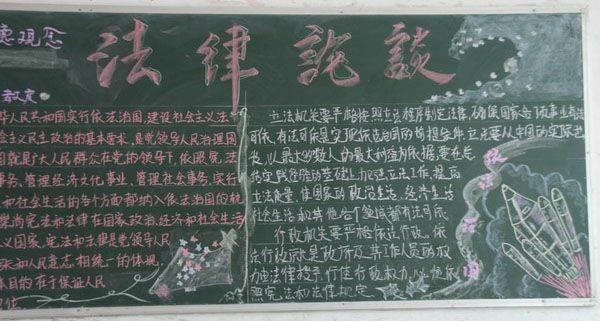 法律论谈
德观念
教室
华人民共和国实行依法治国,建设社会主义法
会主义民主政治的基本要求,是党领导人民治理国
国就是广大人民群众在党的领导下,依照宪法
事务、管理经济文化事业、管理社会事务,实行
和社会生活的每个方面都纳入依法治国的轨
崇尚宪法和法律在国家政治、经济和社会生活
义国家,宪法和法律是党领导人民
张和人民意志相统一的体现,
本目的在于保证人民
立法机关要严格按照立法程序制定法律,确保国家各项事业有法
可依,有法可依是实现依法治国的前提条件,立法要从中国的实际出
发,以最大多数人的最大利益为依据,要在总
的基础上加强立法工作,提高
立法质量,使国家的政治生活、经济生活
社会生活和其他各个领域都有法可依。
行政机关要严格依法行政。依
法行政就是政府及其工作人员的权
力由法律授予,行使行政权力,必须依
照宪法和法律规定。